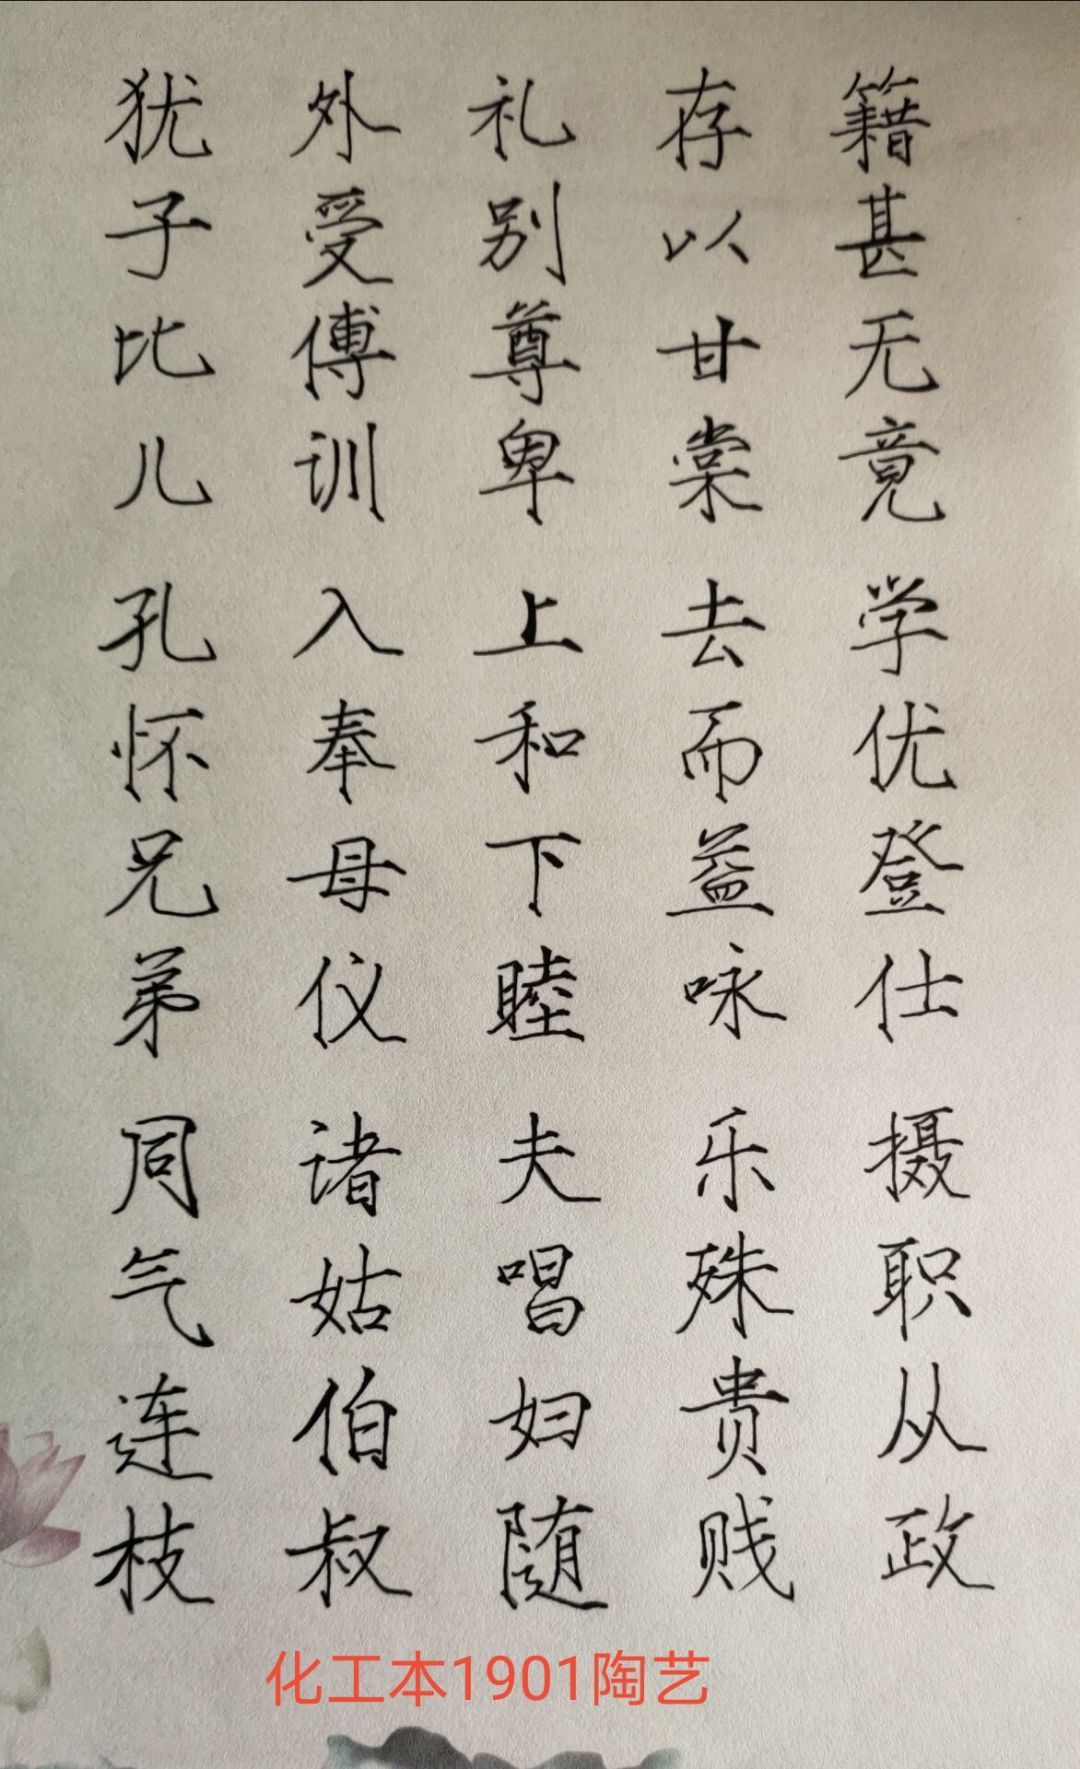 籍甚无竟学优登仕摄职从政
存以甘棠去而益咏乐殊贵贱
礼别尊卑上和下睦夫唱妇随
外受傅训入奉母仪诸姑伯叔
犹子比儿孔怀兄弟同气连枝
化工本1901陶艺